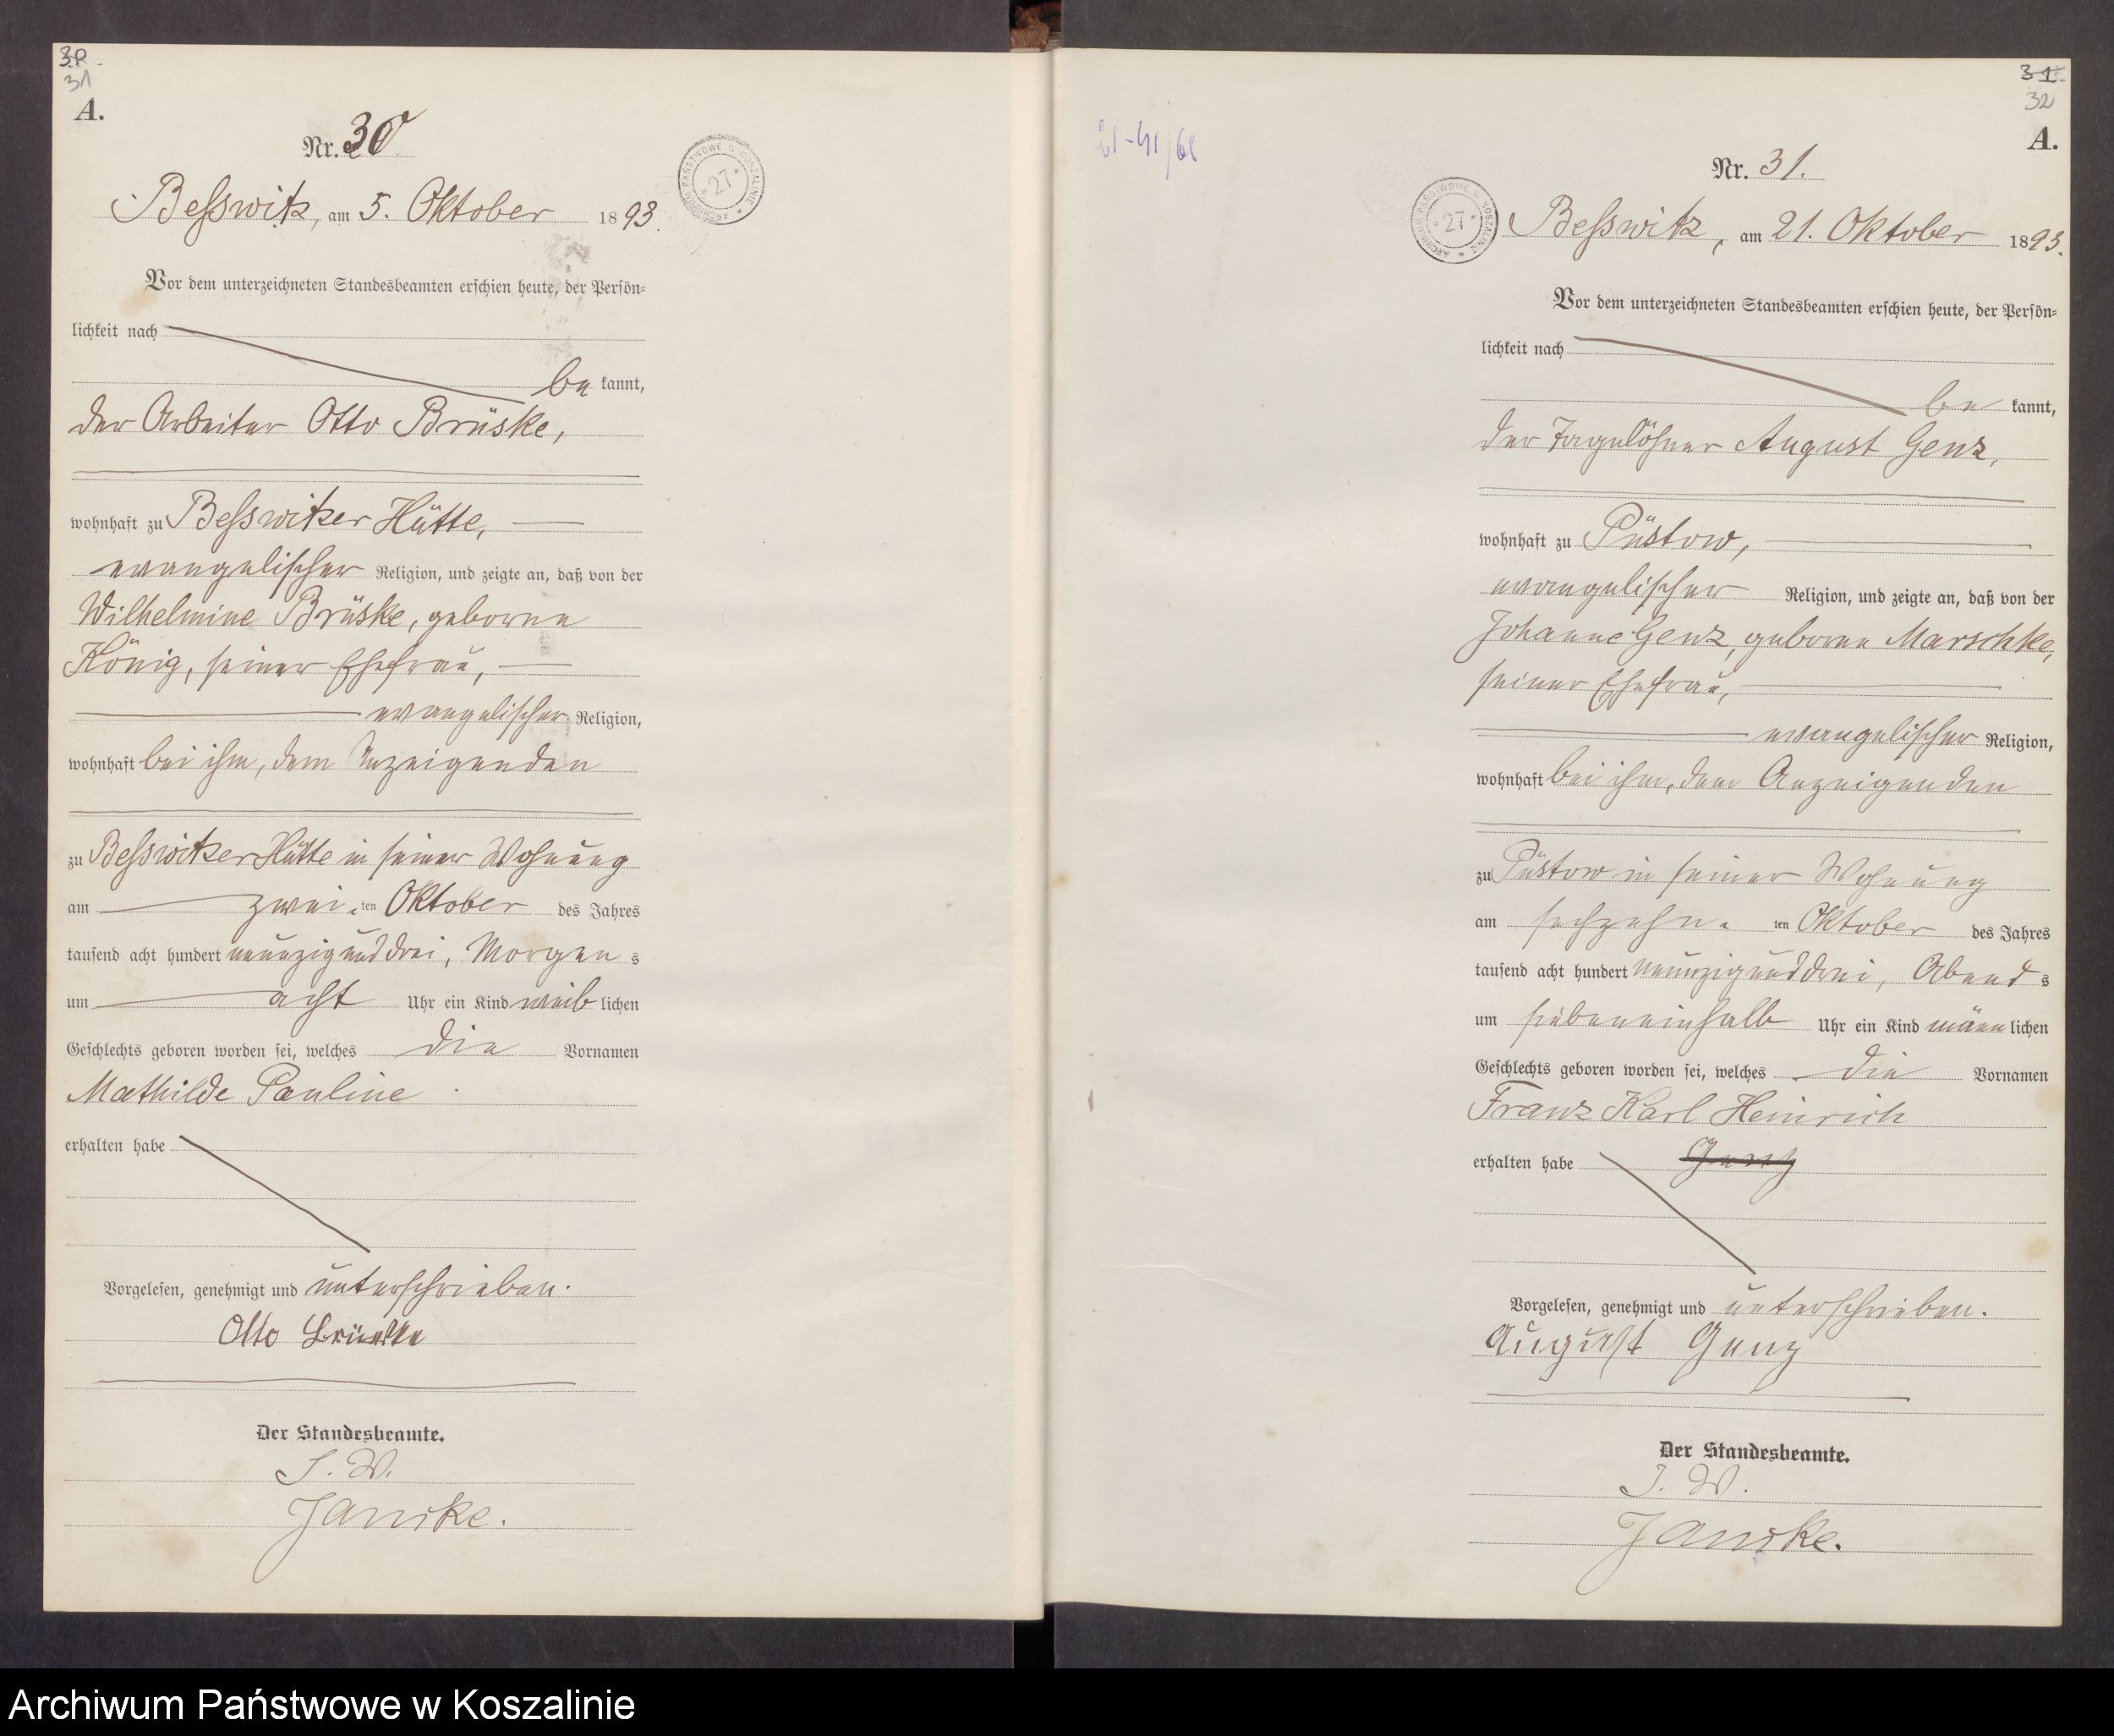 30.
31
A.
Nr. 30
Beſswitz, am 5. Oktober 1893.
ARCHIWUM PAŃSTWOWE W KOSZALINIE * 27 *
Vor dem unterzeichneten Standesbeamten erſchien heute, der Perſön-
lichkeit nach
be kannt,
der Arbeiter Otto Brüske,
wohnhaft zu Beſswitzer Hütte,
evangeliſcher Religion, und zeigte an, daß von der
Wilhelmine Brüske, geborne
König, ſeiner Ehefrau,
evangeliſcher Religion,
wohnhaft bei ihm, dem Anzeigenden
zu Beſswitzer Hütte in ſeiner Wohnung
am zwei ten Oktober des Jahres
tauſend acht hundert neunzig und drei, Morgen s
um acht Uhr ein Kind weib lichen
Geſchlechts geboren worden ſei, welches die Vornamen
Mathilde Pauline
erhalten habe
Vorgeleſen, genehmigt und unterſchrieben.
Otto Brüske
Der Standesbeamte.
J. W.
Janske.
31.
32
A.
21-41/68
Nr. 31.
ARCHIWUM PAŃSTWOWE W KOSZALINIE * 27 *
Beſswitz, am 21. Oktober 1893.
Vor dem unterzeichneten Standesbeamten erſchien heute, der Perſön-
lichkeit nach
be kannt,
der Tagelöhner August Genz,
wohnhaft zu Püstow,
evangeliſcher Religion, und zeigte an, daß von der
Johanne Genz, geborne Marschke,
ſeiner Ehefrau,
evangeliſcher Religion,
wohnhaft bei ihm, dem Anzeigenden
zu Püstow in ſeiner Wohnung
am ſechzehn ten Oktober des Jahres
tauſend acht hundert neunzig und drei, Abend s
um ſiebeneinhalb Uhr ein Kind männ lichen
Geſchlechts geboren worden ſei, welches die Vornamen
Franz Karl Heinrich
erhalten habe Genz
Vorgeleſen, genehmigt und unterſchrieben.
Auguſt Genz
Der Standesbeamte.
J. W.
Janske.
Archiwum Państwowe w Koszalinie